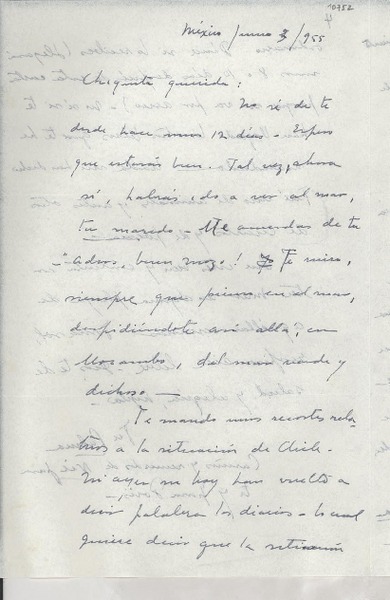 10752
México, junio 3/955
4
Chiquita querida:
No sé de ti
desde hace unos 12 días. Espero
que estarás bien. Tal vez, ahora
sí, habrás ido a ver al mar,
tu marido. Me acuerdas de tu
"Adiós, buen mozo"! Te miro,
siempre que pienso en el mar,
despidiéndote así allá, en
del mar verde y
dichoso—
Te mando unos recortes rela
tivos a la situación de Chile.
Ni ayer ni hoy han vuelto a
decir palabra los diarios. Lo cual
quiere decir que la situación